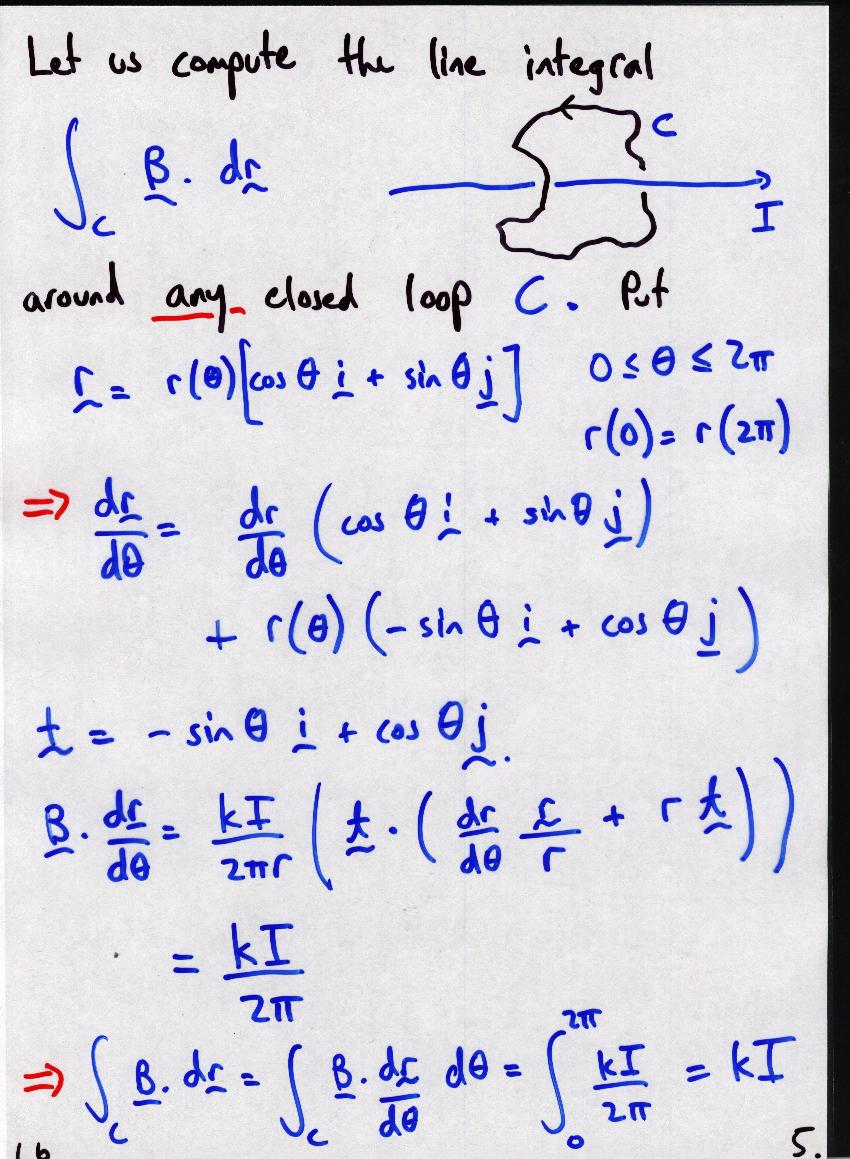 Let us compute the line integral
∫_C B̰ . dr̰ C I
around any closed loop C. Put
r̰ = r(θ)[cos θ ḭ + sin θ j̰] 0 ≤ θ ≤ 2π
r(0) = r(2π)
⇒ dr̰/dθ = dr/dθ (cos θ ḭ + sin θ j̰)
+ r(θ) (- sin θ ḭ + cos θ j̰)
t̰ = - sin θ ḭ + cos θ j̰.
B̰ . dr̰/dθ = kI/2πr ( t̰ . ( dr/dθ r̰/r + r t̰ ) )
= kI/2π
⇒ ∫_C B̰ . dr̰ = ∫_C B̰ . dr̰/dθ dθ = ∫_0^2π kI/2π = kI
5.